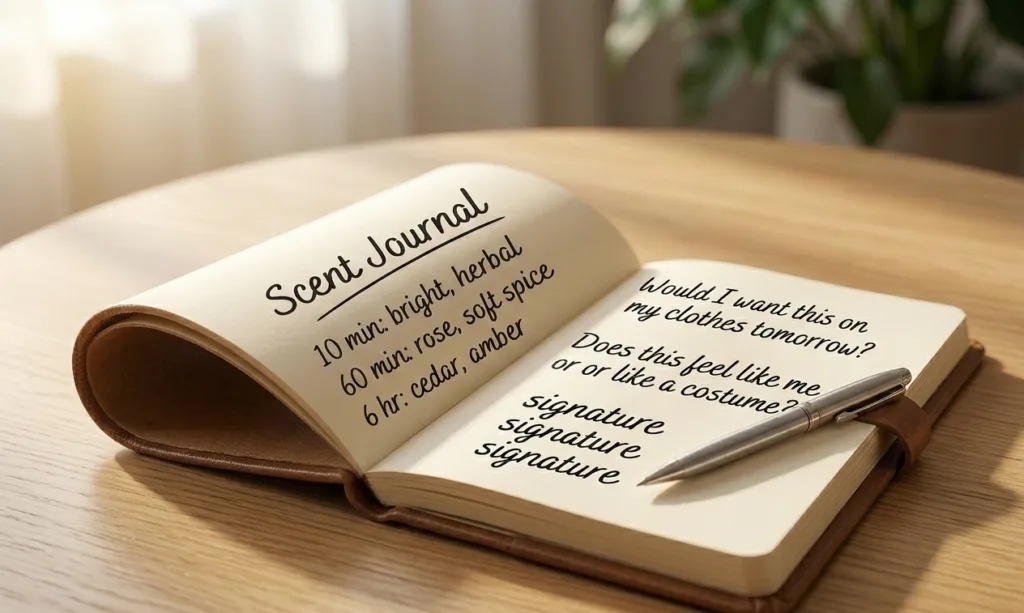 Scent Journal
10 min: bright, herbal
60 min: rose, soft spice
6 hr: cedar, amber
Would I want this on
my clothes tomorrow?
Does this feel like me
or or like a costume?
signature
signature
signature